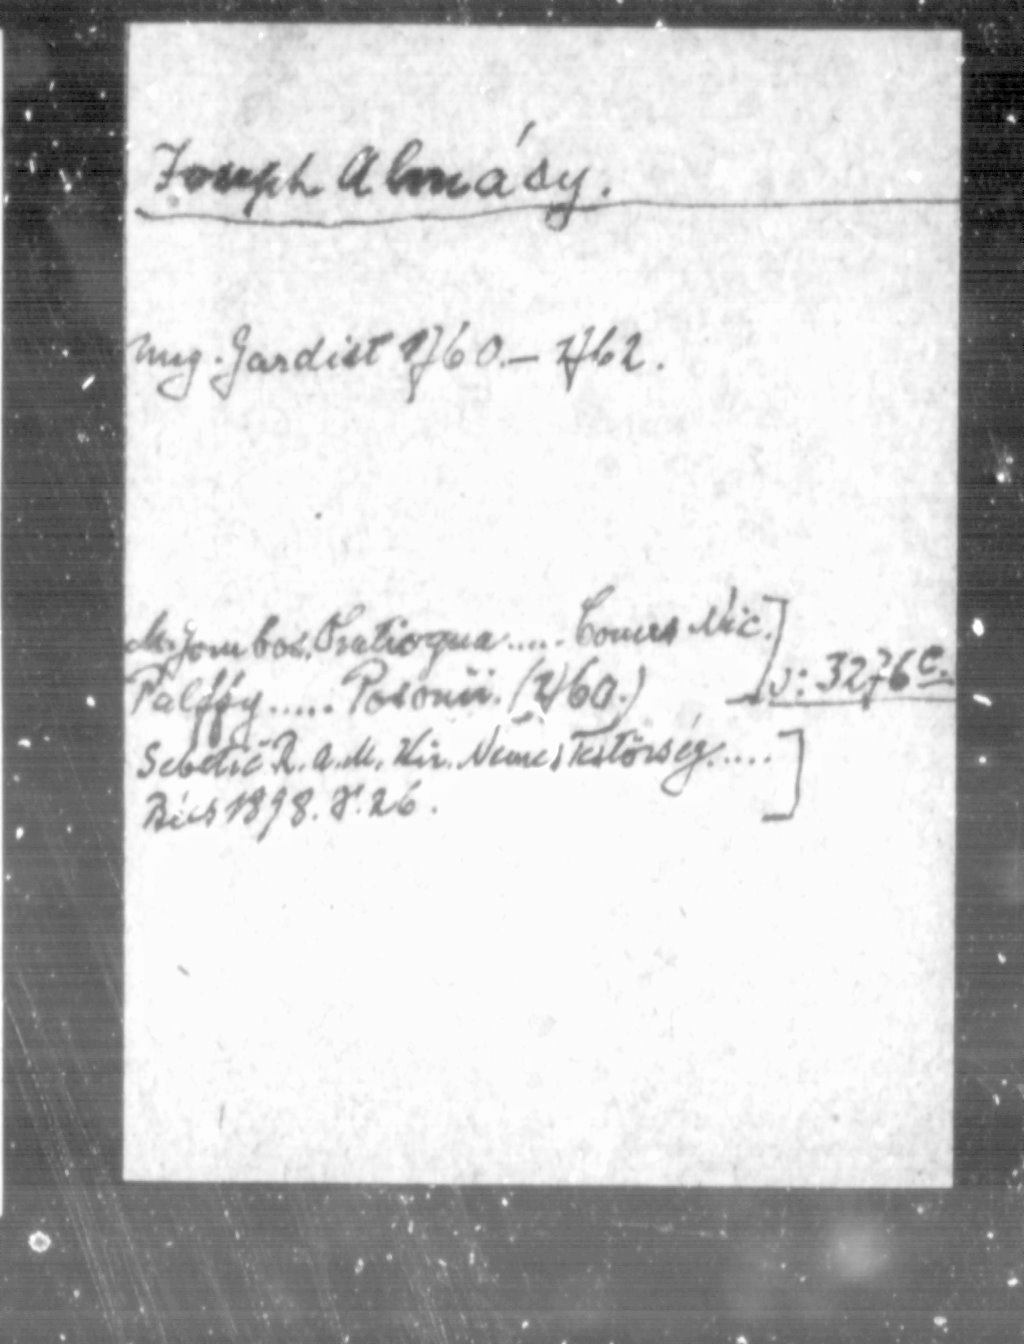 Joseph Almásy.
Ung. Gardist 1760.— 1762.
M. Gombos, Oratio qua ..... Comes Nic.
Palffy ..... Posonii. (1760.)
v: 3276 c.
Sebetić R. A. M. Kir. Nemes Testőrség .....
Bécs 1898. S. 26.